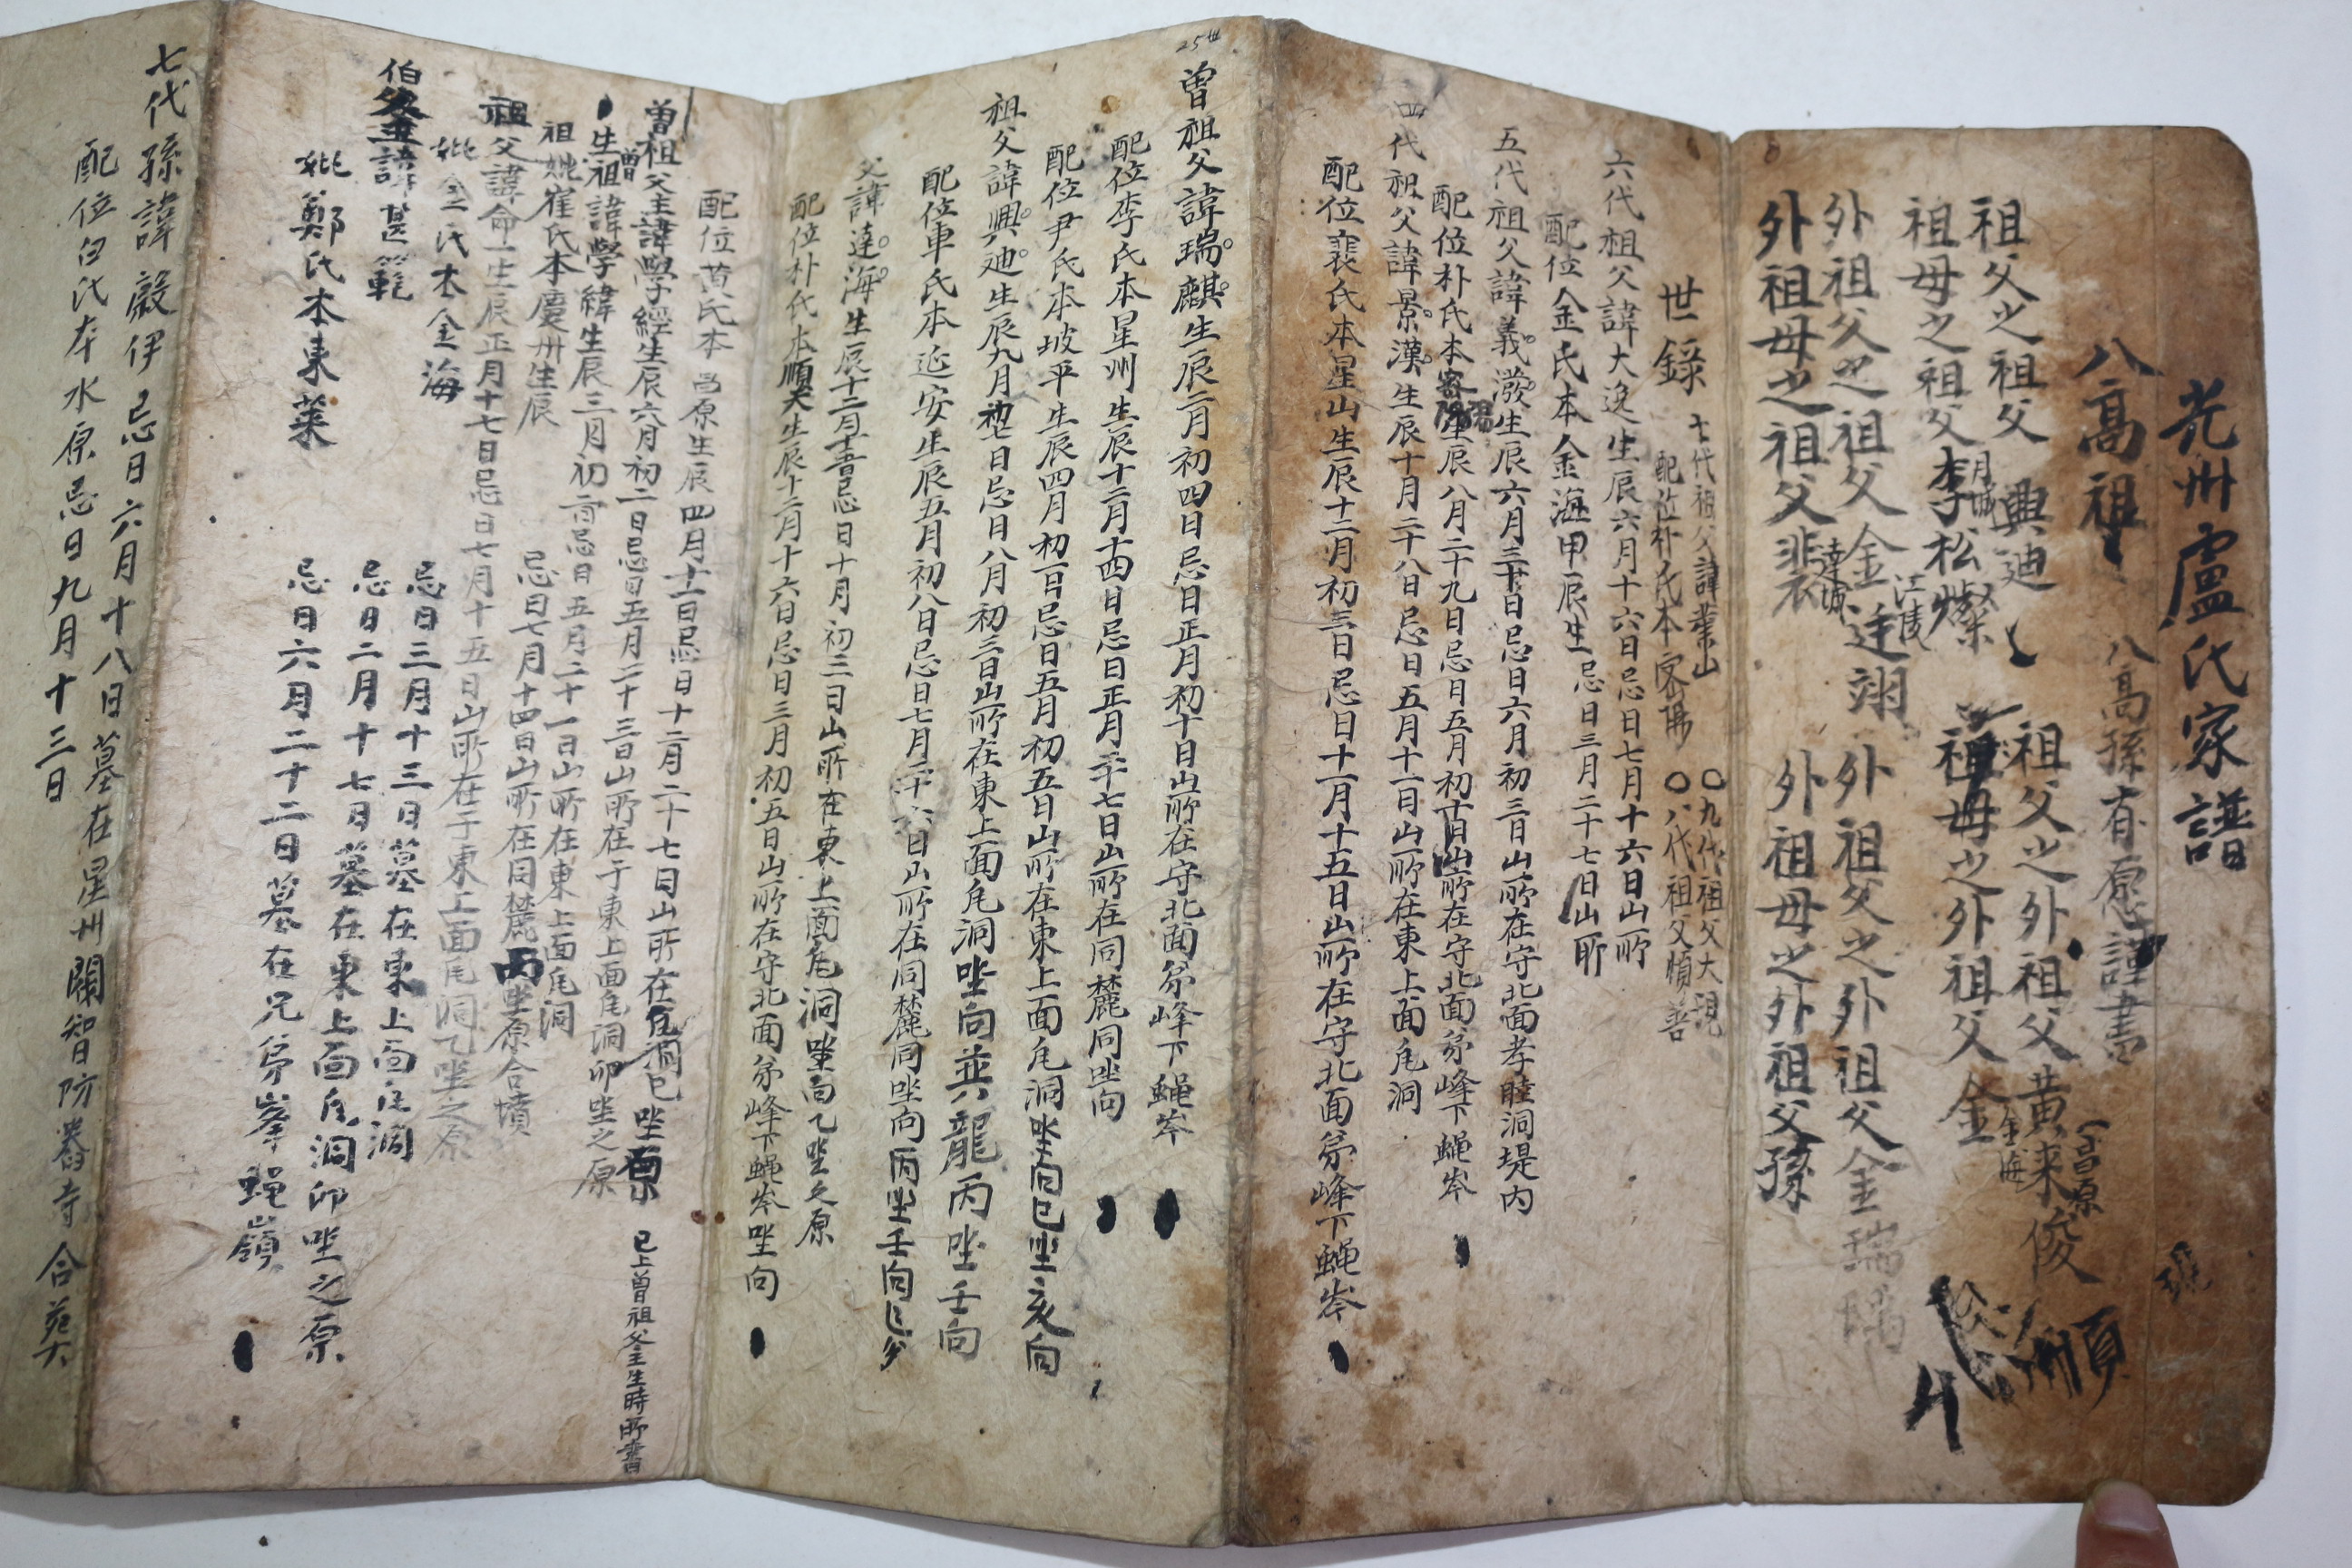 光州盧氏家譜
八高祖 八高孫有愿謹書
祖父之祖父 興迪 祖父之外祖父黃來俊 昌原
祖母之祖父李松燦 月城 祖母之外祖父金 金海
外祖父之祖父金廷翊 江陵 外祖父之外祖父金瑞
外祖母之祖父裵 達城 外祖母之外祖父孫
世錄 七代祖父諱 山 〇九代祖父大現
配位朴氏本密陽 〇八代祖父愼善
六代祖父諱大逸生辰六月十六日忌日七月十六日山所
配位金氏本金海甲辰生忌日三月二十七日山所
五代祖父諱義潑生辰六月三十日忌日六月初三日山所在守北面孝睦洞堤內
配位朴氏本密陽生辰八月二十九日忌日五月初十日山所在守北面弟峰下蠅岑
四代祖父諱景漢生辰十月二十八日忌日五月十一日山所在東上面凥洞
配位裵氏本星山生辰十二月初三日忌日十一月十五日山所在守北面弟峰下蠅岑
25世
曾祖父諱瑞麒生辰二月初四日忌日正月初十日山所在守北面弟峰下蠅岑
配位李氏本星州生辰十二月十四日忌日正月二十七日山所在同麓同坐向
配位尹氏本坡平生辰四月初一日忌日五月初五日山所在東上面凥洞坐向巳坐亥向
祖父諱興迪生辰九月初七日忌日八月初三日山所在東上面凥洞坐向並六龍丙坐壬向
配位車氏本延安生辰五月初八日忌日七月二十六日山所在同麓同坐向丙坐壬向
父諱達海生辰十二月 忌日十月初三日山所在東上面凥洞坐向乙坐之原
配位朴氏本順天生辰十二月十六日忌日三月初五日山所在守北面弟峰下蠅岑坐向
配位黃氏本昌原生辰四月十一日忌日十二月二十七日山所在凥洞巳坐原
曾祖父主諱學經生辰六月初二日忌日五月二十三日山所在于東上面凥洞卯坐之原 已上曾祖父主生時所書
生曾祖諱學緯生辰三月初 忌日五月二十一日山所在東上面凥洞
祖妣崔氏本慶州生辰 忌日七月十四日山所在同麓丙坐原合墳
祖父諱命 生辰正月十七日忌日七月十五日山所在于東上面凥洞乙坐之原
妣金氏本金海 忌日三月十三日墓在東上面凥洞
伯父主諱甚範 忌日二月十七日墓在東上面凥洞卯坐之原
妣鄭氏本東萊 忌日六月二十二日墓在兄弟峯蠅嶺
七代孫諱 伊 忌日六月十八日墓在星州闌智防 寺合葬
配位白氏本水原忌日九月十三日